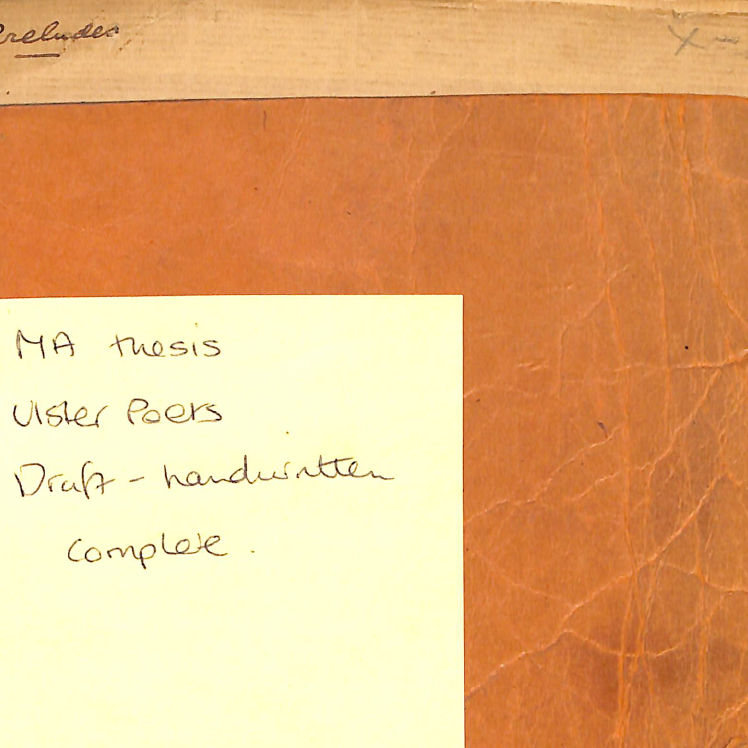 Preludes
MA thesis
Ulster Poets
Draft - handwritten
Complete.